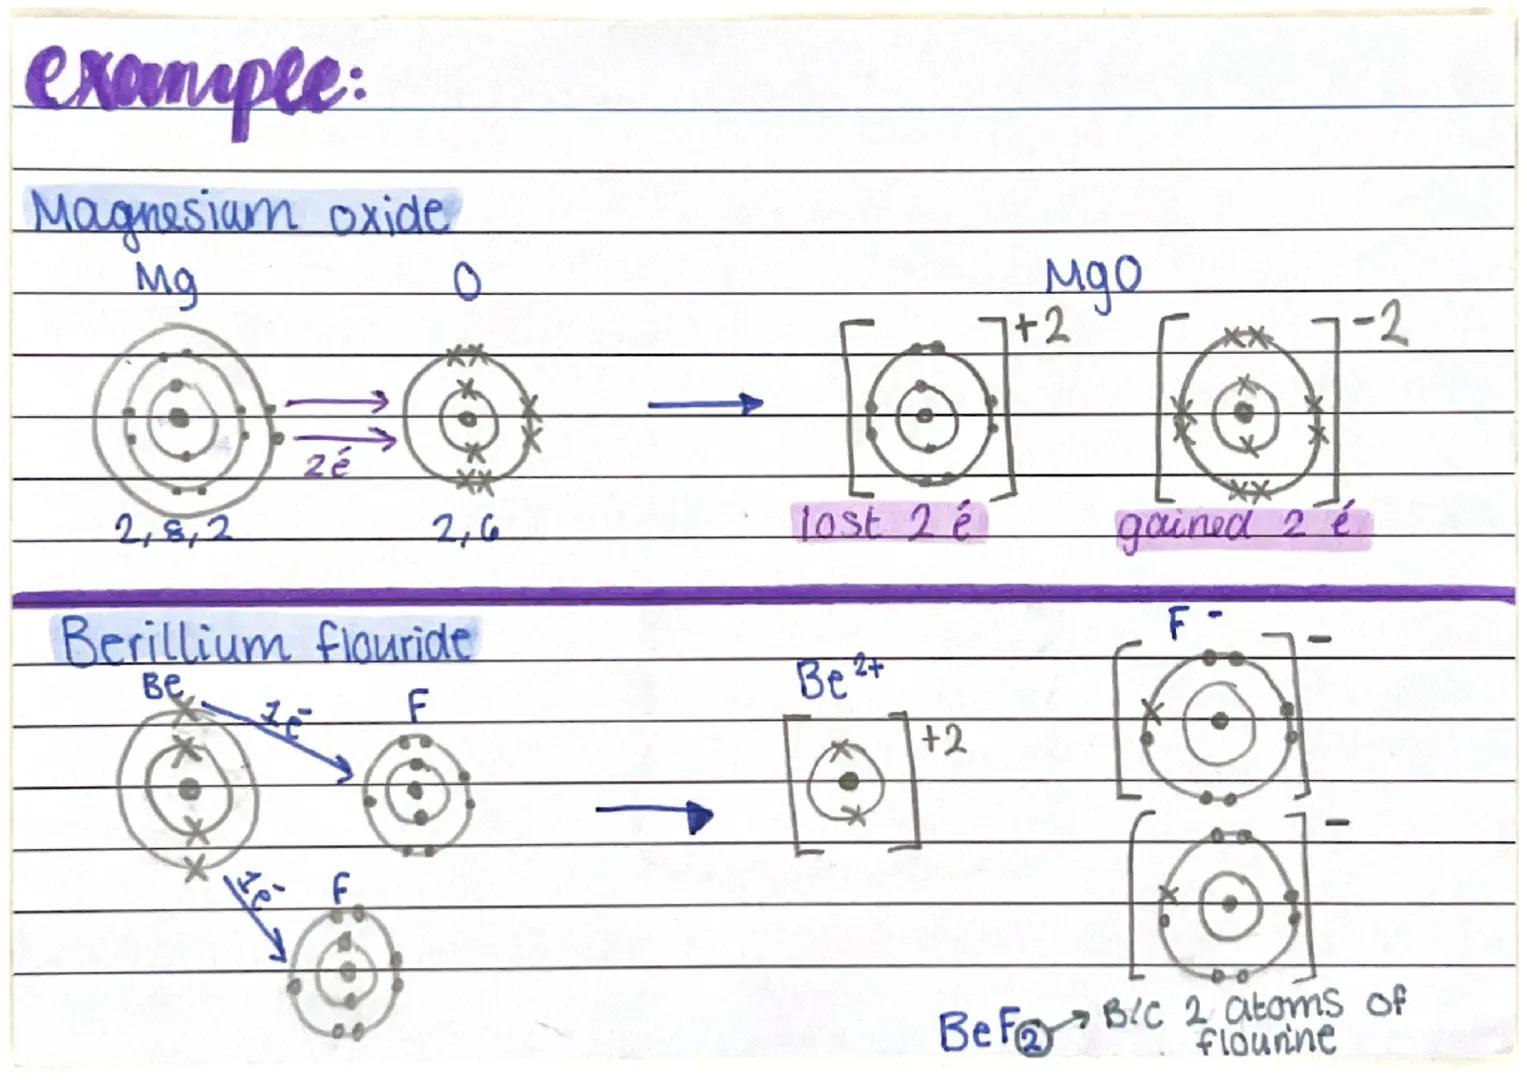 example:
Magnesium oxide
Mg O MgO
+2 -2
2é
2,8,2 2,6 lost 2 é gained 2 é
Berillium flouride
F -
-
Be F Be 2+
1e-
+2
-
1e- F
BeF2 → B/c 2 atoms of
flourine